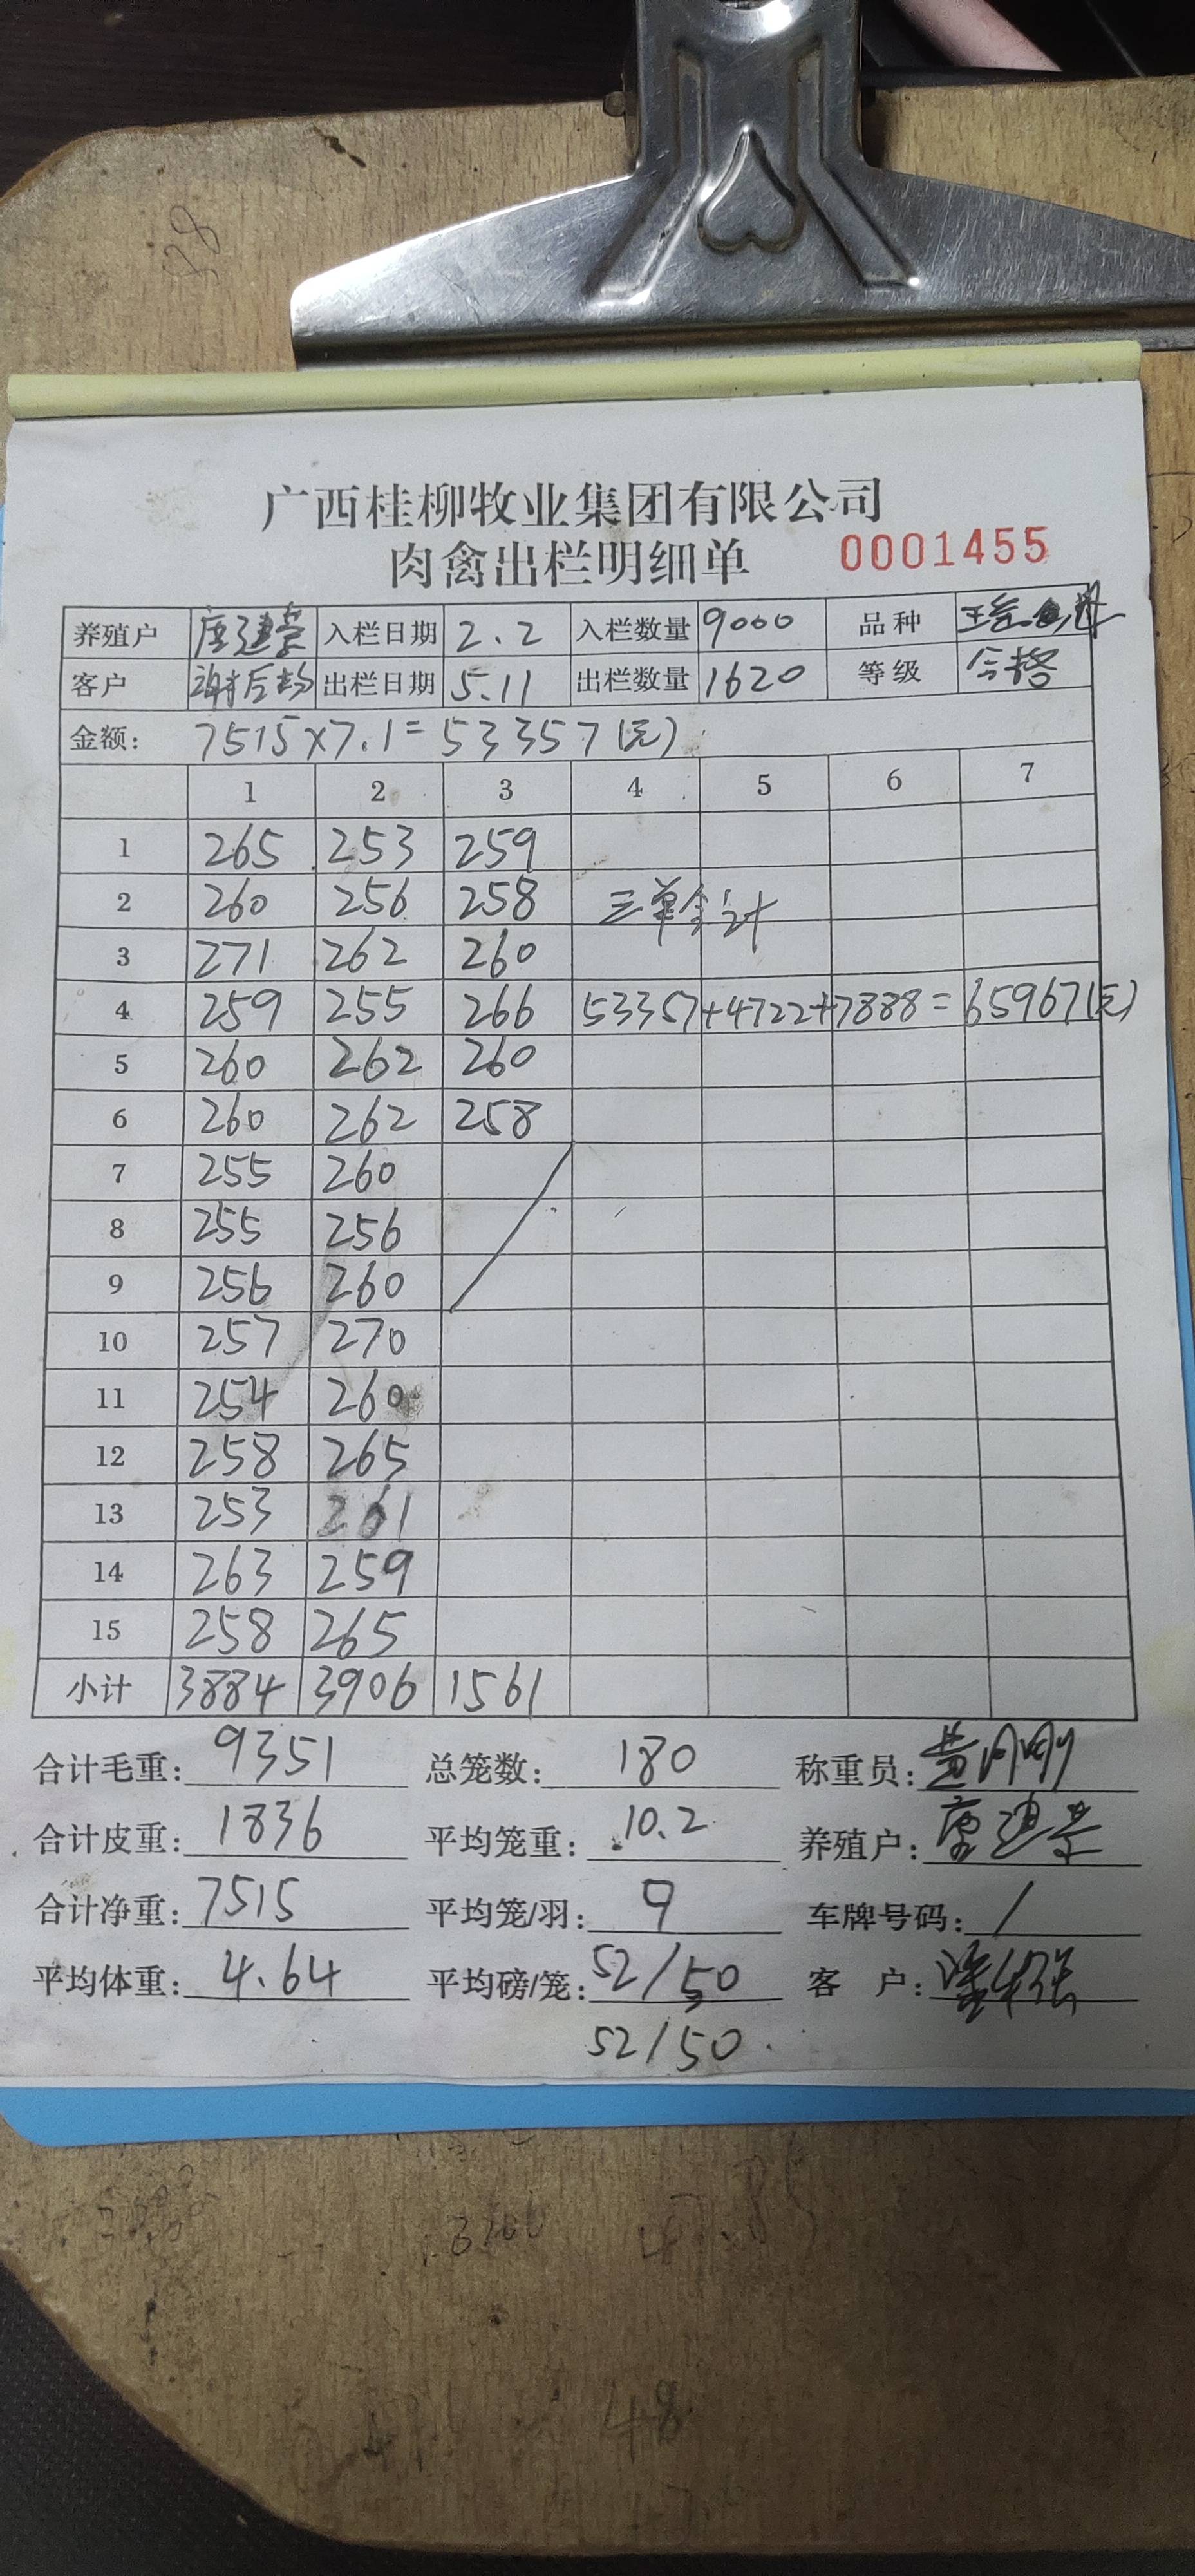 广西桂柳牧业集团有限公司
肉禽出栏明细单 0001455
养殖户 唐建荣 入栏日期 2.2 入栏数量 9000 品种
客户 谢后均 出栏日期 5.11 出栏数量 1620 等级 合格
金额: 7515×7.1=53357(元)
1 2 3 4 5 6 7
1 265 253 259
2 260 256 258 三单合计
3 271 262 260
4 259 255 266 53357+4722+7888=65967(元)
5 260 262 260
6 260 262 258
7 255 260
8 255 256
9 256 260
10 257 270
11 254 260
12 258 265
13 253 261
14 263 259
15 258 265
小计 3884 3906 1561
合计毛重: 9351 总笼数: 180 称重员: 黄刚刚
合计皮重: 1836 平均笼重: 10.2 养殖户: 唐建荣
合计净重: 7515 平均笼/羽: 9 车牌号码: /
平均体重: 4.64 平均磅/笼: 52/50 客 户:
52/50